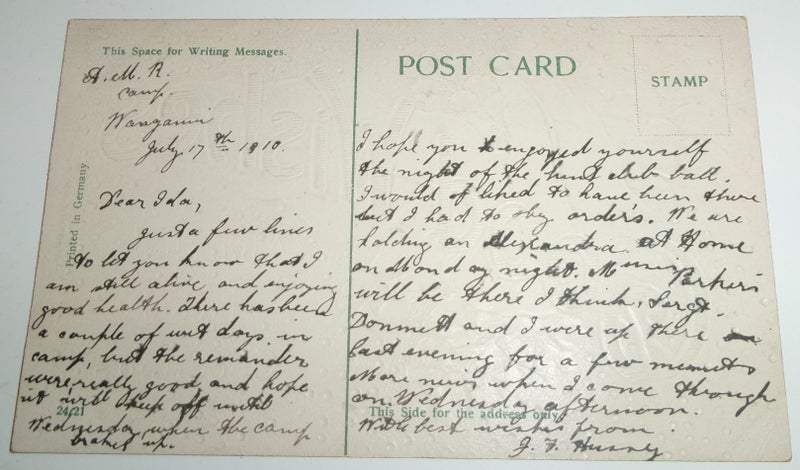 This Space for Writing Messages.
A. M. R.
Camp.
Wanganui
July 17th 1910.
Dear Ida,
Just a few lines
to let you know that I
am still alive and enjoying
good health. There has been
a couple of wet days in
camp, but the remander
were really good and hope
it will keep off until
Wednesday when the camp
brakes up.
Printed in Germany
24/21
POST CARD
STAMP
I hope you enjoyed yourself
the night of the hunt club ball.
I would of liked to have been there
but I had to obey order's. We are
holding an Alexandra At Home
on Monday night. Parker's
will be there I think, Sergt.
Donnett and I were up there
last evening for a few memets
More news when I come through
on Wednesday afternoon.
This Side for the address only
With best wishes from
J. F. Hussey